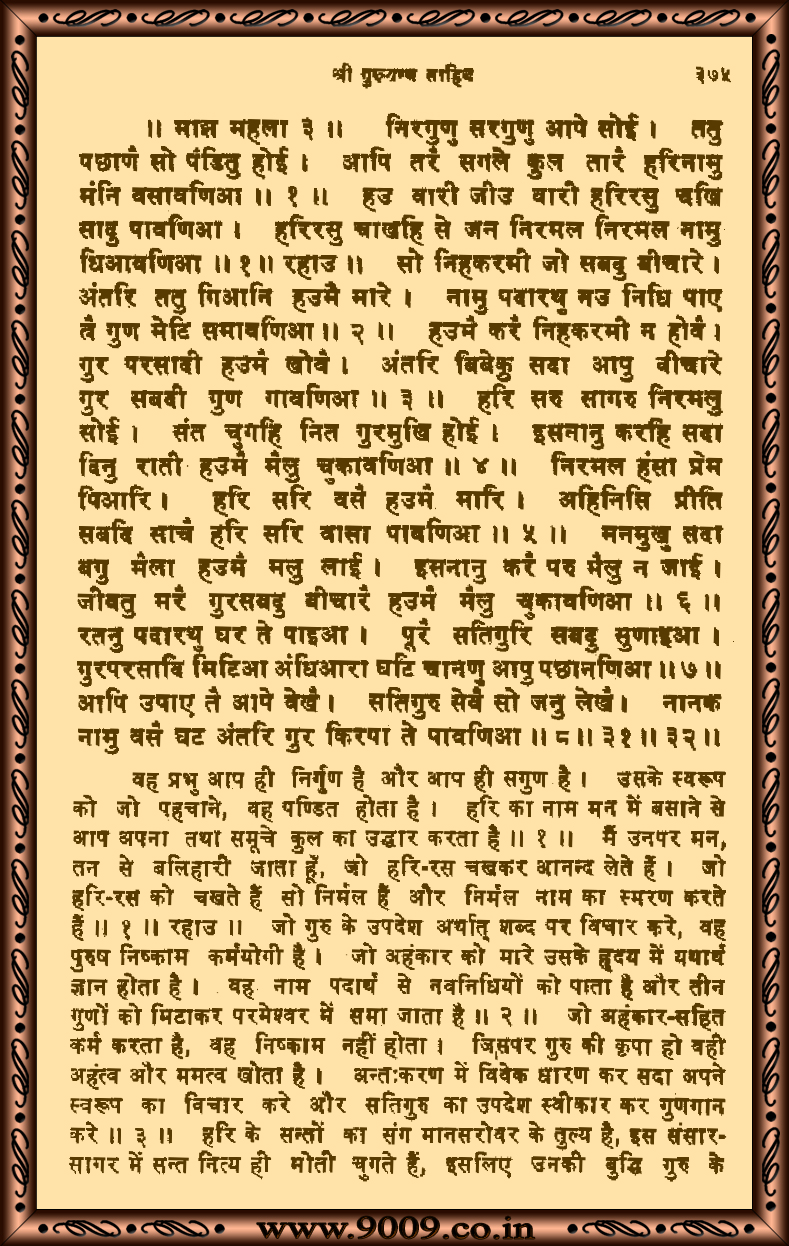 श्री गुरुग्रन्थ साहिब ३७५
॥ माझ महला ३ ॥ निरगुणु सरगुणु आपे सोई । ततु
पछाणै सो पंडितु होई । आपि तरै सगले कुल तारै हरिनामु
मंनि वसावणिआ ॥ १ ॥ हउ वारी जीउ वारी हरिरसु चखि
सादु पावणिआ । हरिरसु चाखहि से जन निरमल निरमल नामु
धिआवणिआ ॥ १ ॥ रहाउ ॥ सो निहकरमी जो सबदु बीचारे ।
अंतरि ततु गिआनि हउमै मारे । नामु पदारथु नउ निधि पाए
त्रै गुण मेटि समावणिआ ॥ २ ॥ हउमै करै निहकरमी न होवै ।
गुर परसादी हउमै खोवै । अंतरि बिबेकु सदा आपु वीचारे
गुर सबदी गुण गावणिआ ॥ ३ ॥ हरि सरु सागरु निरमलु
सोई । संत चुगहि नित गुरमुखि होई । इसनानु करहि सदा
दिनु राती हउमै मैलु चुकावणिआ ॥ ४ ॥ निरमल हंसा प्रेम
पिआरि । हरि सरि वसै हउमै मारि । अहिनिसि प्रीति
सबदि साचै हरि सरि वासा पावणिआ ॥ ५ ॥ मनमुखु सदा
बगु मैला हउमै मलु लाई । इसनानु करै परु मैलु न जाई ।
जीवतु मरै गुरसबदु बीचारै हउमै मैलु चुकावणिआ ॥ ६ ॥
रतनु पदारथु घर ते पाइआ । पूरै सतिगुरि सबदु सुणाइआ ।
गुरपरसादि मिटिआ अंधिआरा घटि चानणु आपु पछानणिआ ॥ ७ ॥
आपि उपाए तै आपे वेखै । सतिगुरु सेवै सो जनु लेखै । नानक
नामु वसै घट अंतरि गुर किरपा ते पावणिआ ॥ ८ ॥ ३१ ॥ ३२ ॥
वह प्रभु आप ही निर्गुण है और आप ही सगुण है । उसके स्वरूप
को जो पहचाने, वह पण्डित होता है । हरि का नाम मन में बसाने से
आप अपना तथा समूचे कुल का उद्धार करता है ॥ १ ॥ मैं उनपर मन,
तन से बलिहारी जाता हूँ, जो हरि-रस चखकर आनन्द लेते हैं । जो
हरि-रस को चखते हैं सो निर्मल हैं और निर्मल नाम का स्मरण करते
हैं ॥ १ ॥ रहाउ ॥ जो गुरु के उपदेश अर्थात् शब्द पर विचार करे, वह
पुरुष निष्काम कर्मयोगी है । जो अहंकार को मारे उसके हृदय में यथार्थ
ज्ञान होता है । वह नाम पदार्थ से नवनिधियों को पाता है और तीन
गुणों को मिटाकर परमेश्वर में समा जाता है ॥ २ ॥ जो अहंकार-सहित
कर्म करता है, वह निष्काम नहीं होता । जिसपर गुरु की कृपा हो वही
अहंत्व और ममत्व खोता है । अन्तःकरण में विवेक धारण कर सदा अपने
स्वरूप का विचार करे और सतिगुरु का उपदेश स्वीकार कर गुणगान
करे ॥ ३ ॥ हरि के सन्तों का संग मानसरोवर के तुल्य है, इस संसार-
सागर में सन्त नित्य ही मोती चुगते हैं, इसलिए उनकी बुद्धि गुरु के
www.9009.co.in